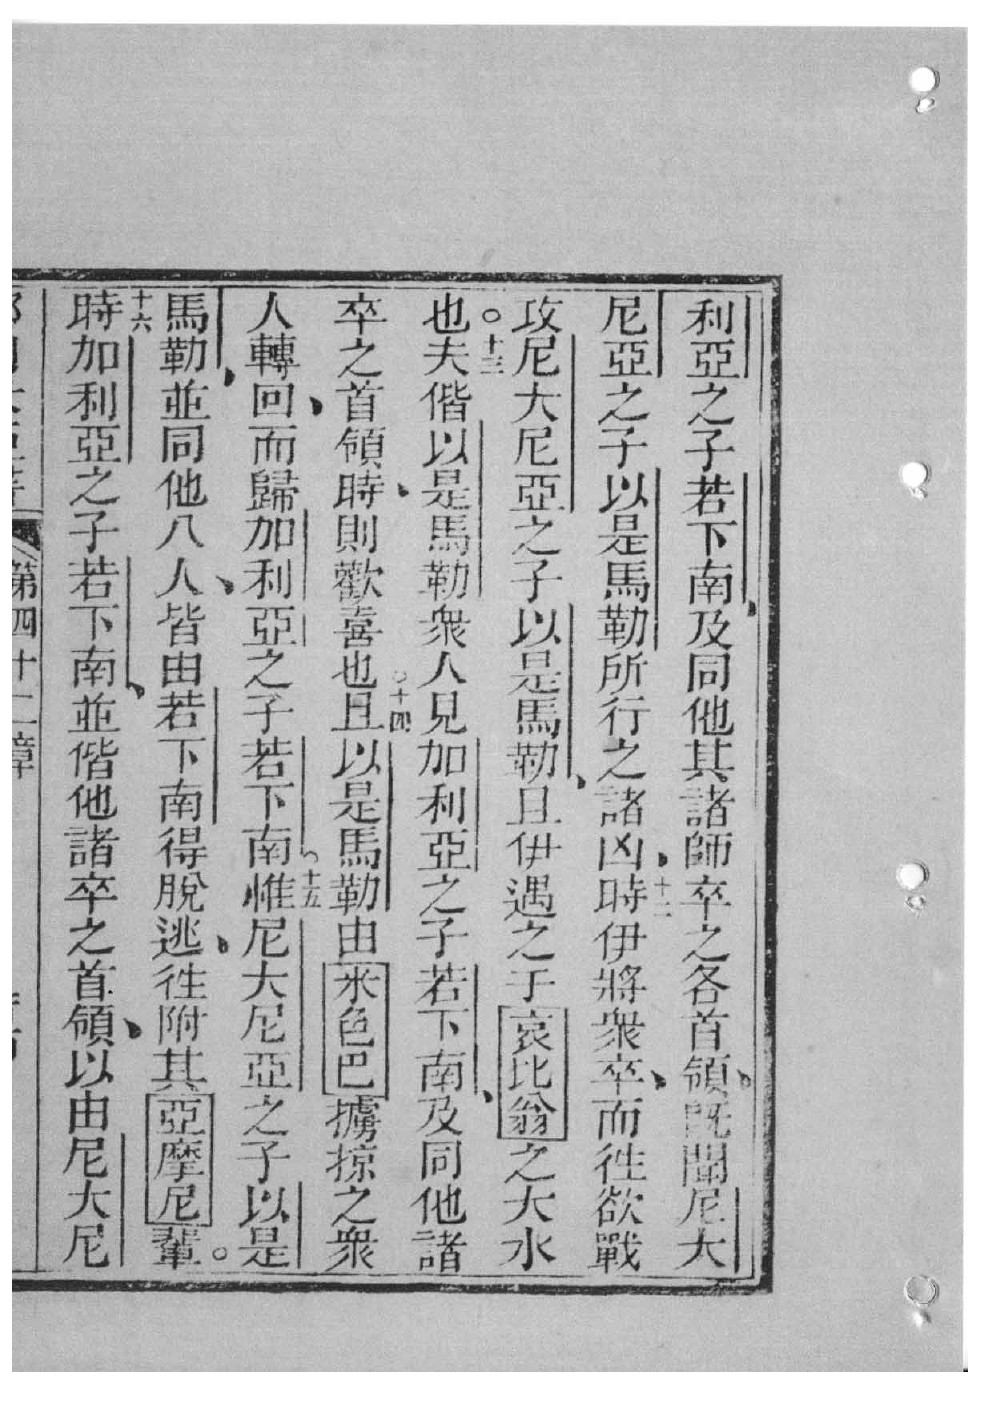 利亞之子若下南及同他其諸師卒之各首領既聞尼大
尼亞之子以是馬勒所行之諸凶時十二伊將衆卒而徃欲戰
攻尼大尼亞之子以是馬勒且伊遇之于哀比翁之大水
也○十三夫偕以是馬勒衆人見加利亞之子若下南及同他諸
卒之首領時則歡喜也○十四且以是馬勒由米色巴擄掠之衆
人轉回而歸加利亞之子若下南○十五惟尼大尼亞之子以是
馬勒並同他八人皆由若下南得脫逃徃附其亞摩尼輩。
十六時加利亞之子若下南並偕他諸卒之首領以由尼大尼
第四十二章